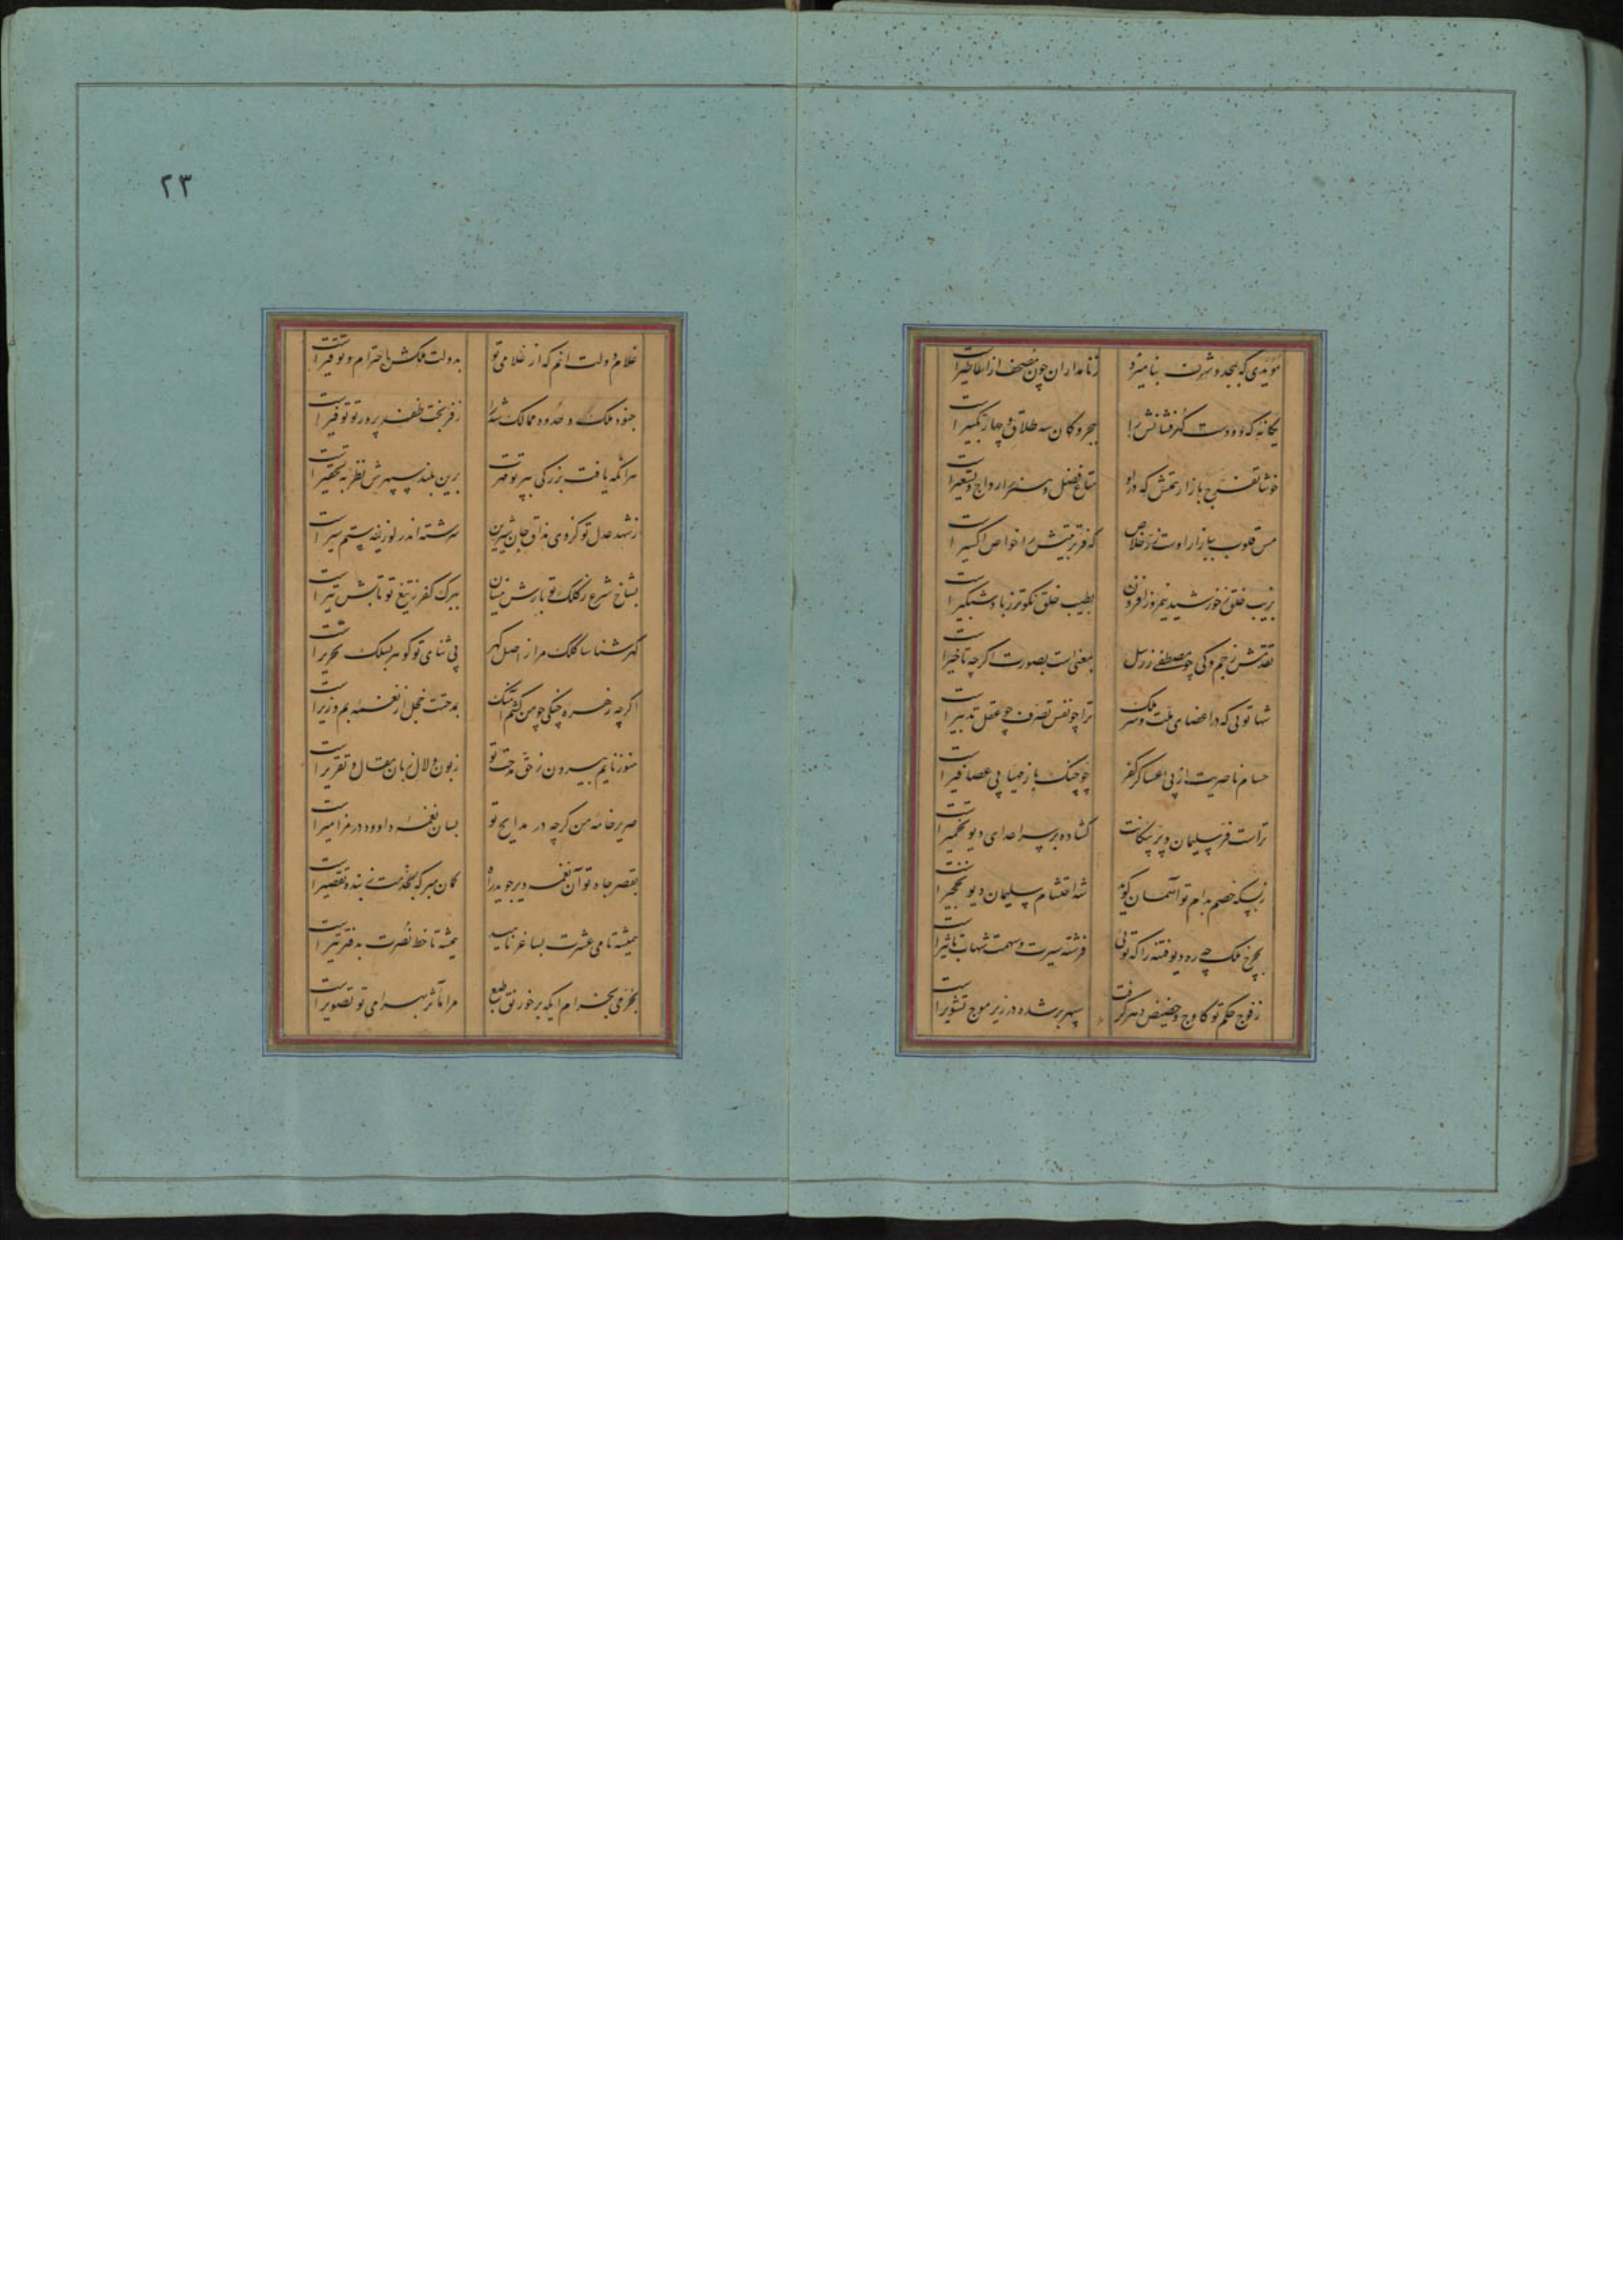 مؤیدی که بمجد و شرف بنامیزد
ز نامداران چون مصحف از اساطیر است
یگانه که دو دست گهرفشانش را
ببحر و کان سه طلاق و چهار تکبیر است
خوشا تفرج بازار همتش که درو
متاع فضل و هنر را رواج و تسعیر است
مس قلوب ببازار اوست زر خلاص
که فر تربیتش را خواص اکسیر است
بزیب خلق ز خورشید نیمروز افزون
بطیب خلق نکوتر ز باد شبگیر است
تقدمش ز جم و کی چو مصطفی ز رسل
بمعنی است بصورت اگرچه تاخیر است
شها تویی که در اعضای ملت و سر ملک
ترا چو نفس تصرف چو عقل تدبیر است
حسام ناصریت از پی عساکر کفر
چو چنگ باز مهیا پی عصافیر است
تراست فر سلیمان و پر پیکانت
گشاده بر سر اعدای دیو نخچیر است
ز بسکه خصم بدام تو آسمان گوید
شه احتشام سلیمان و دیو نخچیر است
بچرخ ملک چه ره دیو فتنه را که تویی
فرشته سیرت و سهمت شهاب تاثیر است
ز فوج حکم تو کاوج و حضیض دهر گرفت
سپهر بر شده در زیر موج تشویر است
۲۳
غلام دولت آنم که از غلامی تو
بدولت ملکش احترام و توقیر است
جنود ملک و حدود ممالک شه را
ز فر بخت ظفر پرور تو توفیر است
هر آنکه یافت بزرگی بپرتو قدرت
برین بلند سپهرش نظر بتحقیر است
ز شهد عدل تو کز وی مذاق جان شیرین
سرشته اند لوزینه ستم سیر است
بشاخ شرع ز کلک تو بارش نیسان
ببرک کفر ز تیغ تو تابش تیر است
گهرشناسا کلک مرا ز اصل گهر
پی ثنای تو گوهر بسلک تحریر است
اگرچه زهره چنگی چو من کشم آهنگ
بمدحتت خجل از نغمه بم و زیر است
هنوز نایم بیرون ز حق مدحت تو
زبون و لال زبان مقال و تقریر است
صریر خامه من گرچه در مدایح تو
بسان نغمه داوود در مزامیر است
بقصر جاه تو آن نغمه دیر جوید راه
گمان مبر که بخدمت ز بنده تقصیر است
همیشه تا می عشرت بساغر ناهید
همیشه تا خط نصرت بدفتر تیر است
بخرمی بخرام ایکه بر خورنق طبع
مرا مآثر بهرامی تو تصویر است